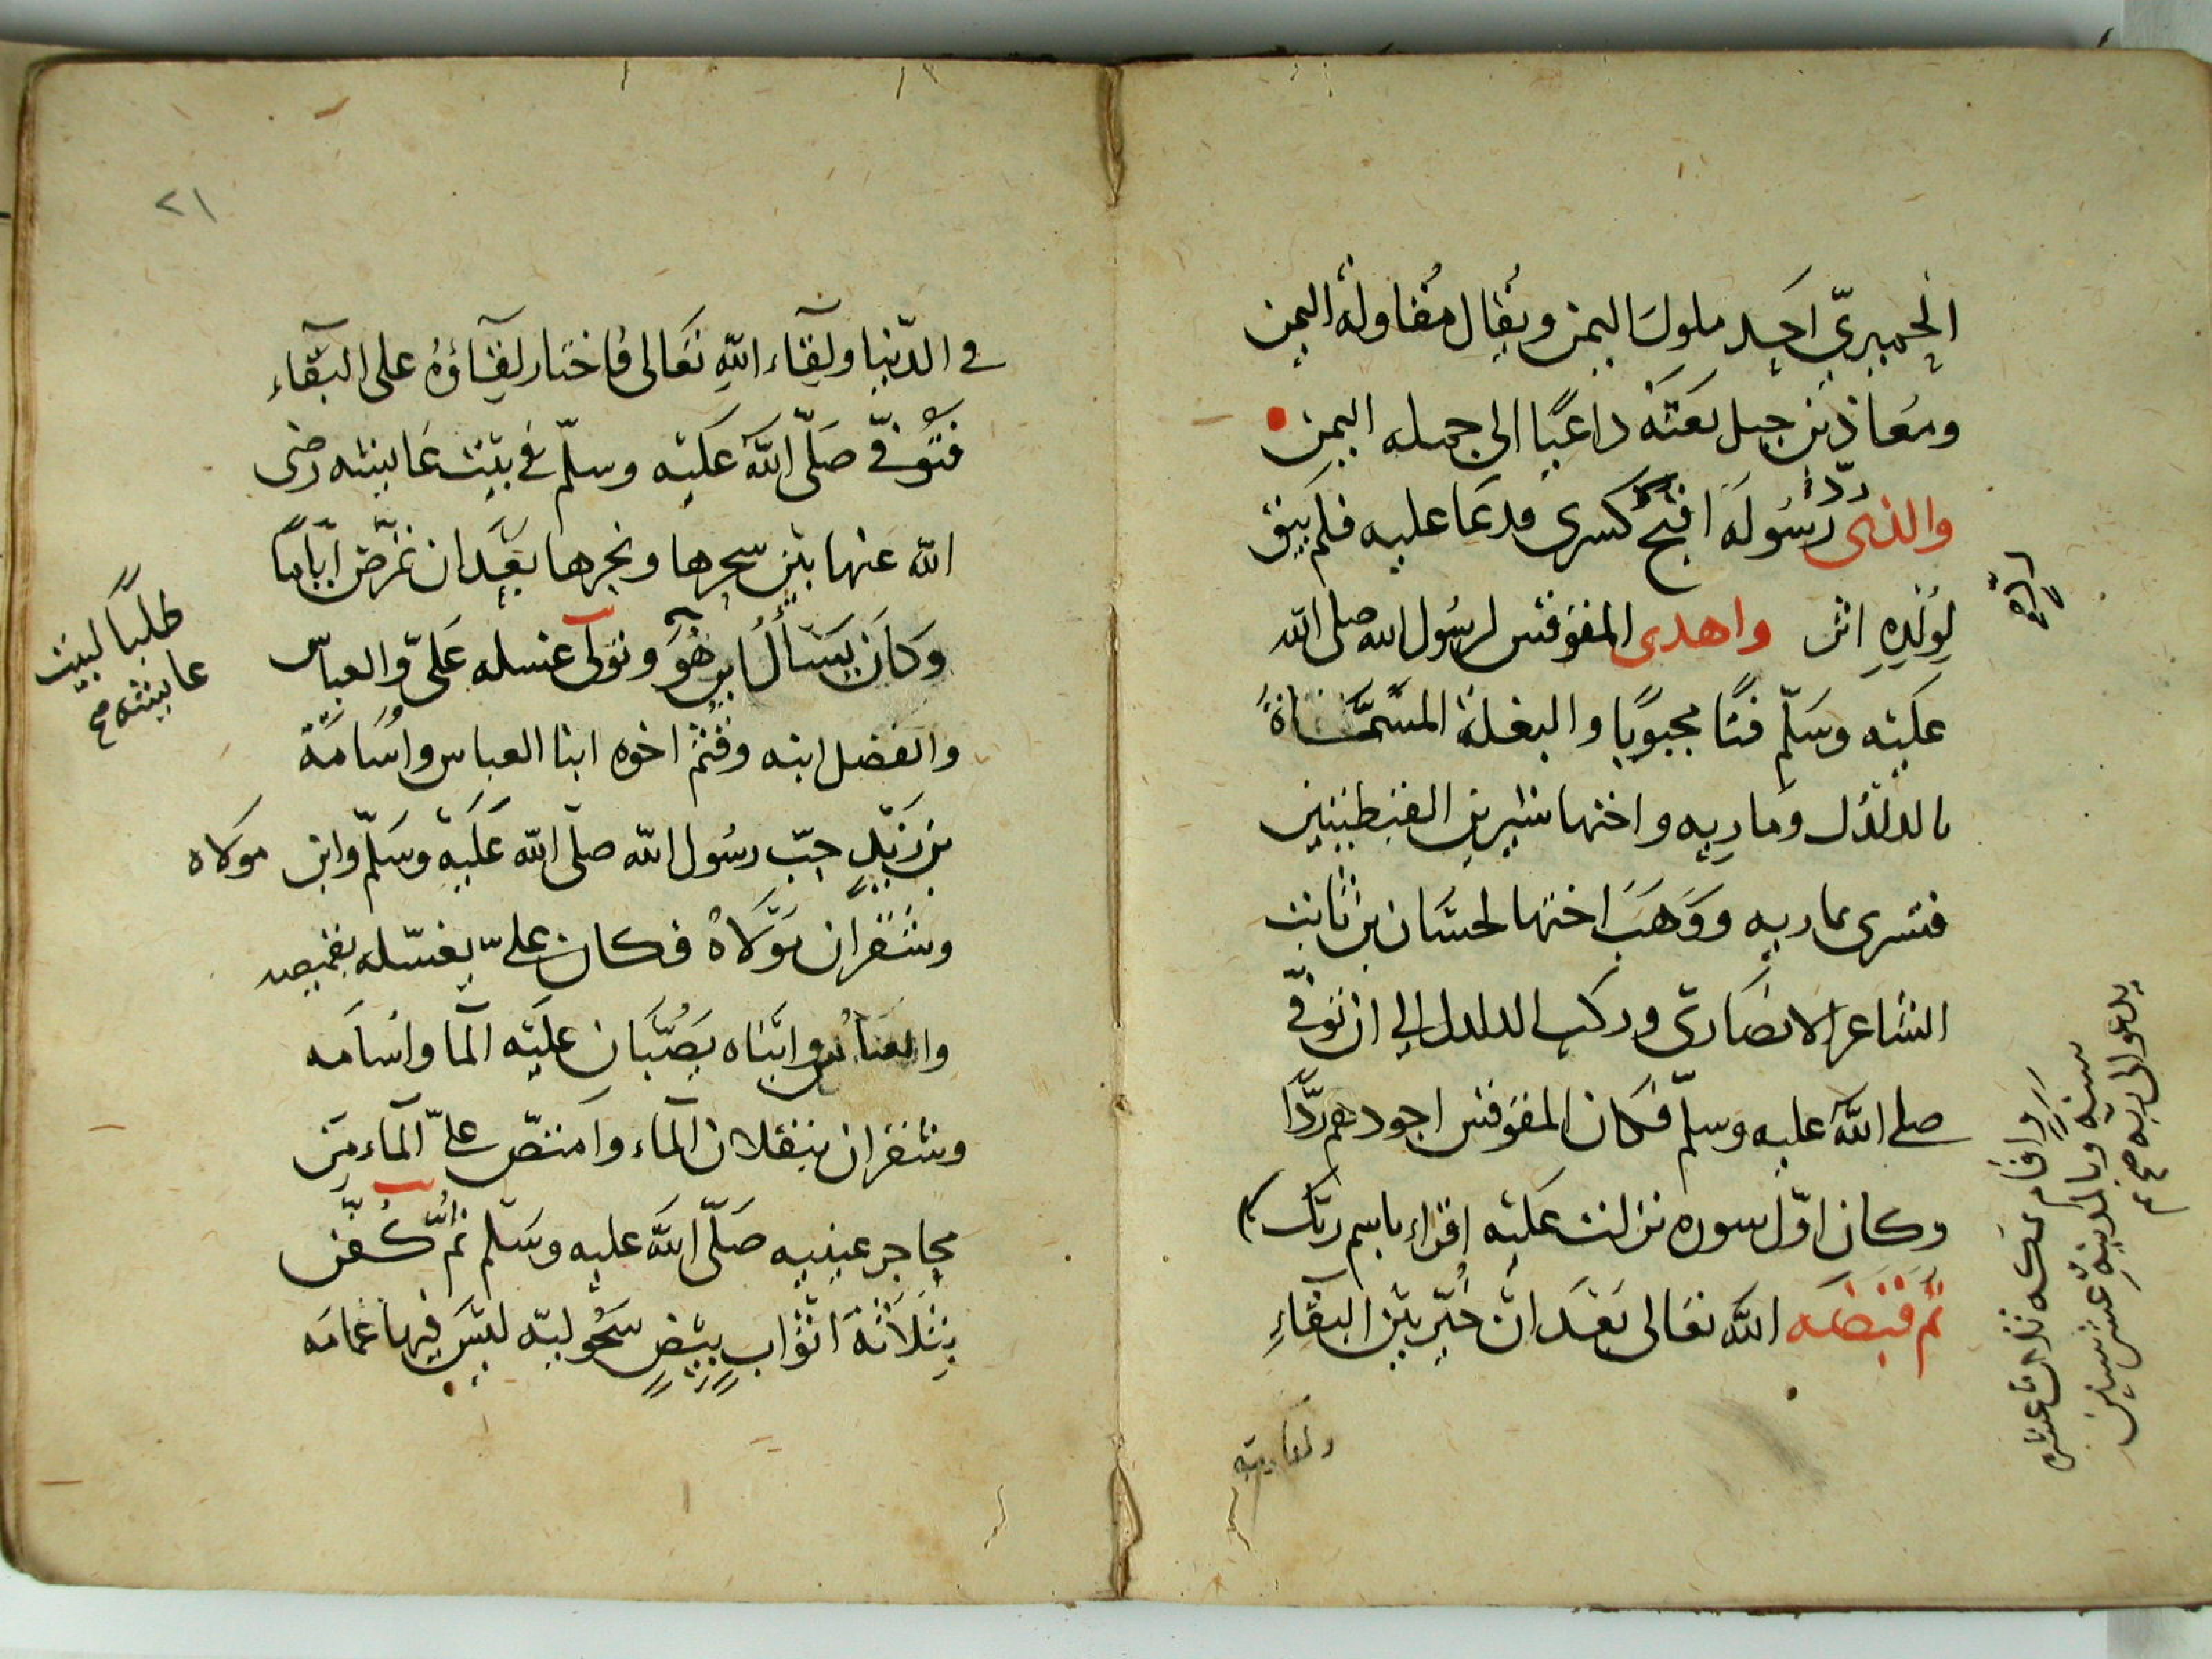 الحميري احد ملوك اليمن ويقال مقاولة اليمن
ومعاذ بن جبل بعثه داعيا الى جمله اليمن
والذى ردّ رسوله اقبح كسرى فدعا عليه فلم يبق
لولده اثر واهدى المقوقس لرسول الله صلى الله
عليه وسلم فتا مجبوبا والبغلة المسماة
بالدلدل وماريه واختها سيرين القبطيتين
فتسرى بماريه ووهب اختها لحسان بن ثابت
الشاعر الانصارى وركب الدلدل الى ان توفى
صلى الله عليه وسلم فكان المقوقس اجودهم ردّا
وكان اوّل سوره نزلت عليه اقراء باسم ربك
ثم قبضه الله تعالى بعد ان خيّر بين البقاء
واقام بمكه ثلاث عشره
سنه وبالمدينه عشر سنين
يدعوا الى ربه صح
٢١
في الدّنيا ولقاء الله تعالى فاختار لقاؤه على البقاء
فتوفى صلّى الله عليه وسلّم في بيت عايشه رضى
الله عنها بين سحرها ونحرها بعد ان تمرّض ايّاما
وكان يسأل اين هو وتولى غسله علىّ والعباس
والفضل ابنه وقثم اخوه ابنا العباس واسامة
بن زيد حِبّ رسول الله صلى الله عليه وسلّم وابن مولاه
وشقران مولاه فكان علىّ يغسّله بقميصه
والعباس وابناه يصبّان عليه الما واسامه
وشقران ينقلان الماء وامتصّ علىّ الماء من
محاجر عينيه صلّى الله عليه وسلم ثم كفّن
بثلاثة اثواب بيض سحوليه ليس فيها عمامه
طلبا لبيت
عايشه صح